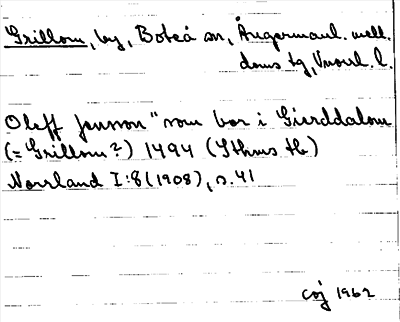 Grillom, by, Boteå sn, Ångermanl. mell.
doms tg, Vnorrl. l.
Oleff Jensson "som bor i Gierddalom
(= Grillom?) 1494 (Sthms tb)
Norrland I:8 (1908), s. 41
CGJ 1962